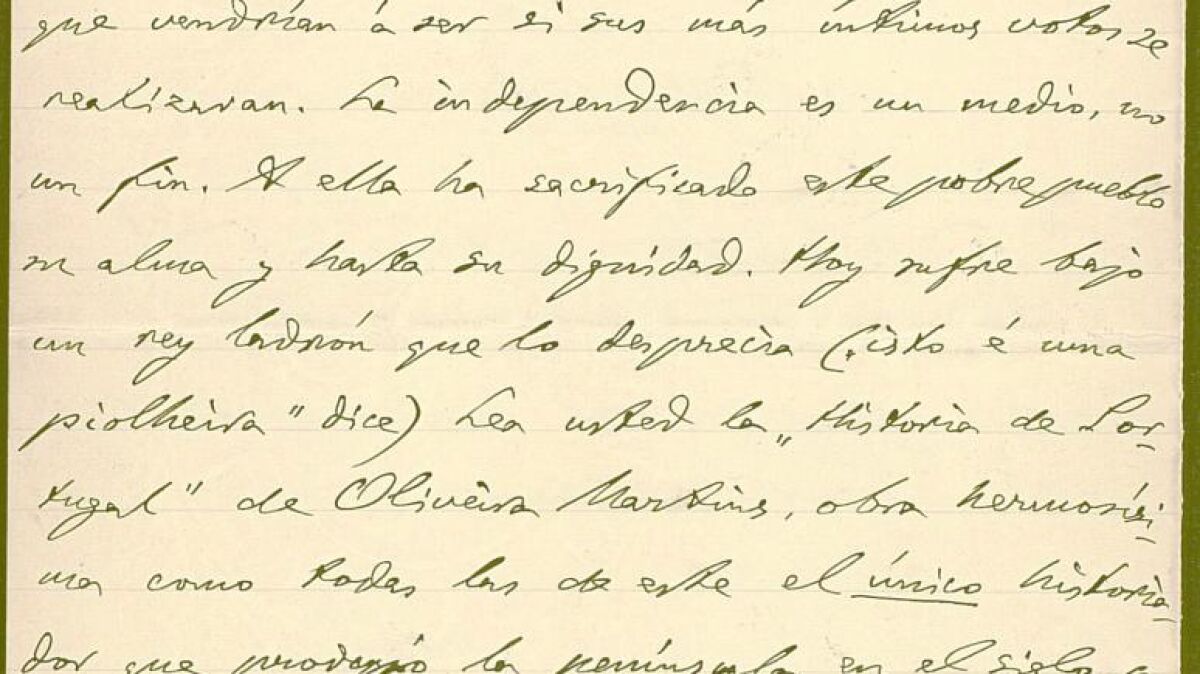 que vendrían á ser si sus más íntimos votos se
realizaran. La independencia es un medio, no
un fin. A ella ha sacrificado este pobre pueblo
su alma y hasta su dignidad. Hoy sufre bajo
un rey ladrón que lo desprecia („isto é uma
piolheira" dice) Lea usted la „Historia de Por-
tugal" de Oliveira Martins, obra hermosísi-
ma como todas las de este el único historia-
dor que produjo la península en el siglo